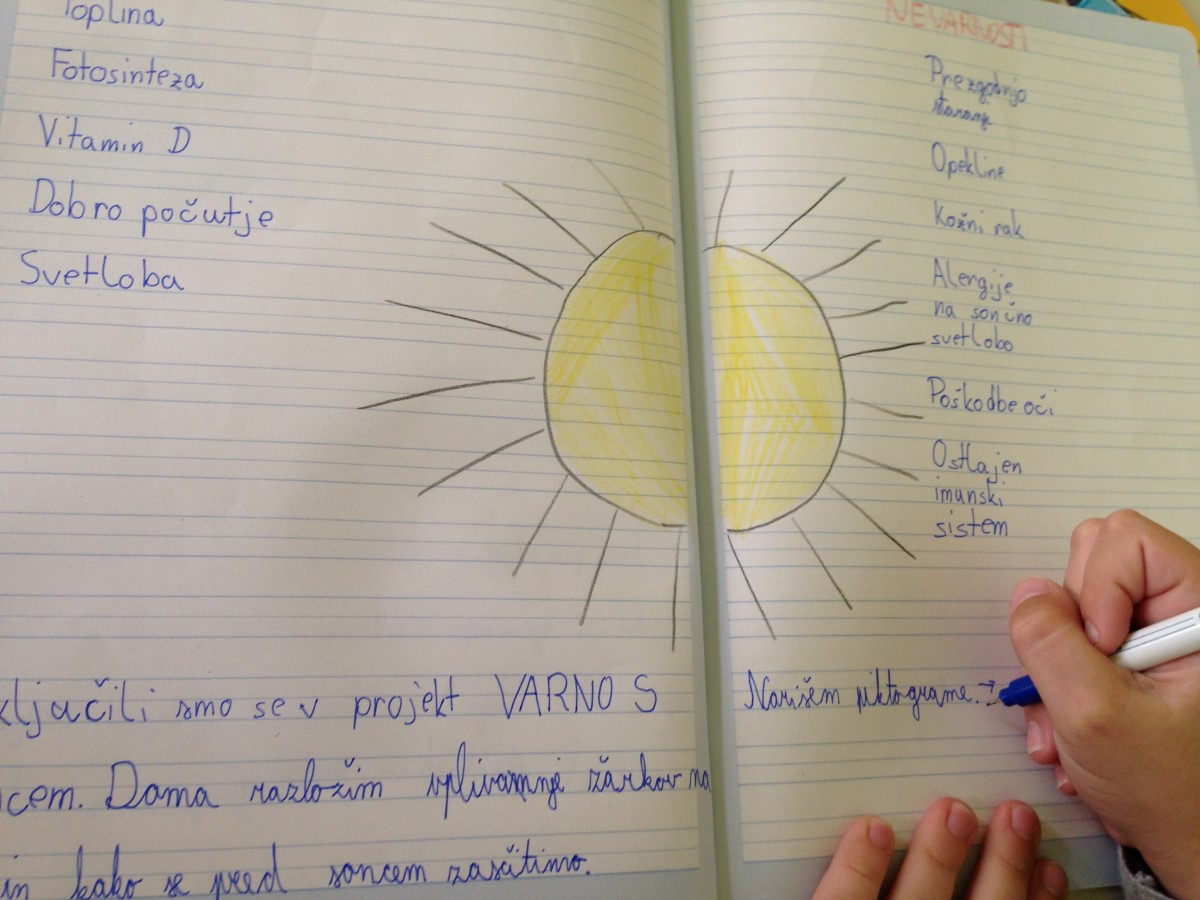 Toplina
Fotosinteza
Vitamin D
Dobro počutje
Svetloba
ključili smo se v projekt VARNO S
cem. Doma razložim vplivanje žarkov na
in kako se pred soncem zaščitimo.
NEVARNOSTI
Prezgodnjo
staranje
Opekline
Kožni rak
Alergije
na sončno
svetlobo
Poškodbe oči
Oslajen
imunski
sistem
Narišem piktograme. →